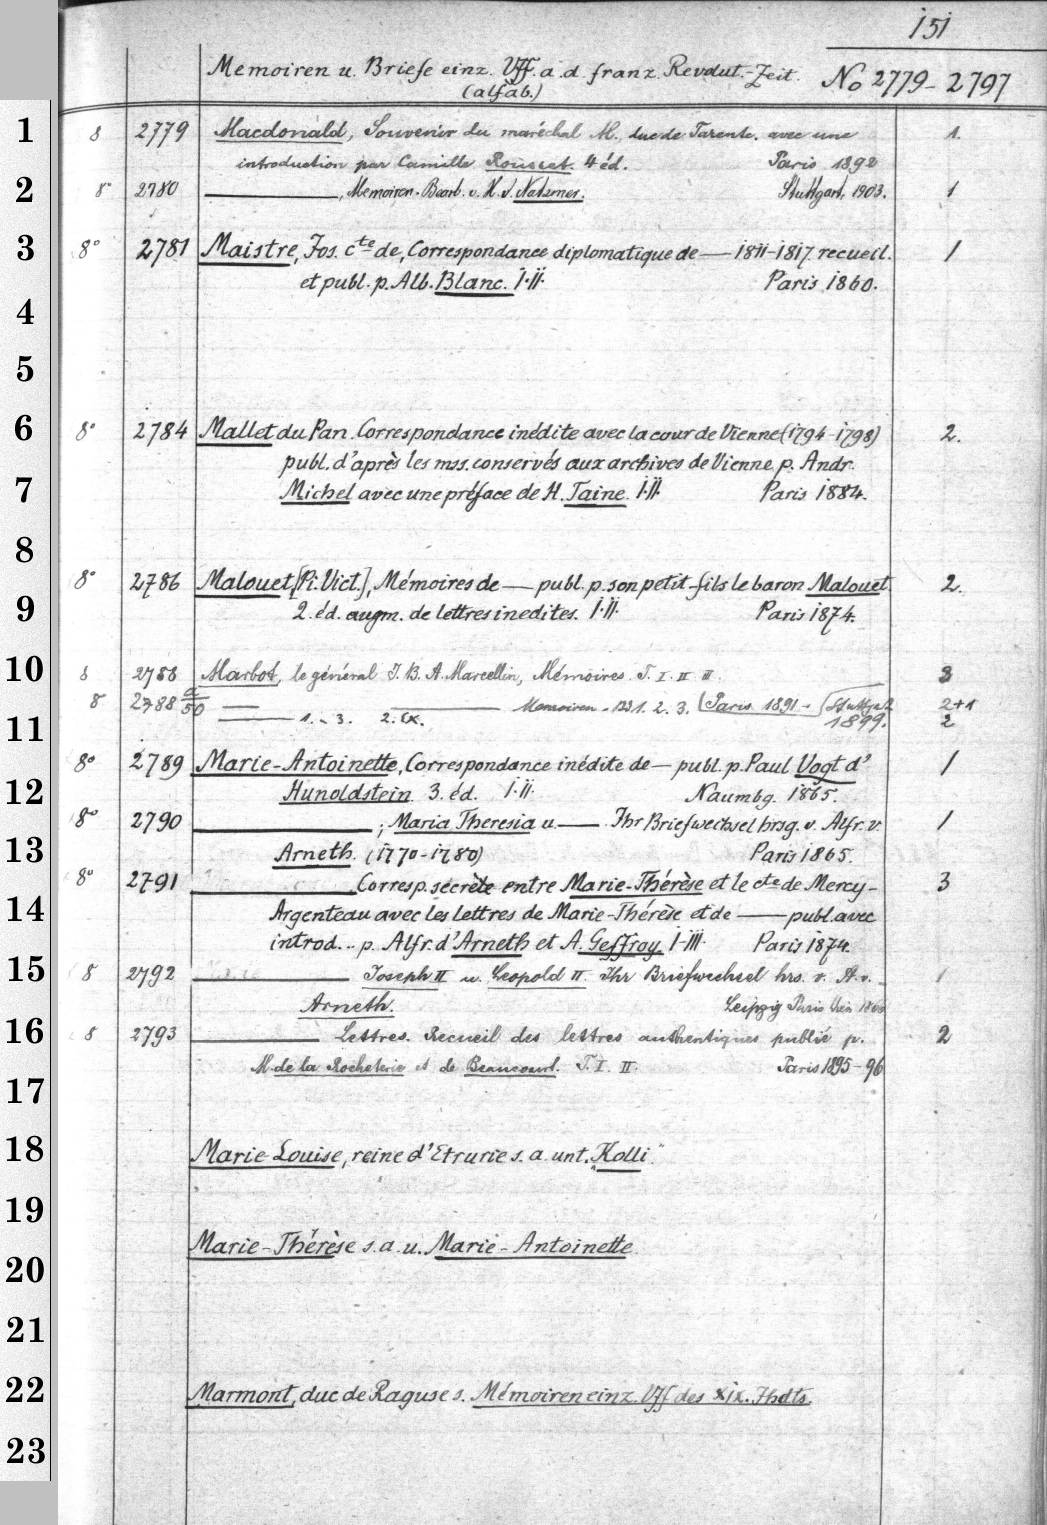 151
Memoiren u. Briefe einz. Vff. a. d. franz. Revolut.-Zeit. No 2779-2797
(alfab.)
1 8 2779 Macdonald, Souvenir du maréchal M., duc de Tarente. avec une 1.
introduction par Camille Rousset. 4 éd. Paris 1892
2 8° 2780 ———, Memoiren. Bearb. v. H. v. Natzmer. Stuttgart, 1903. 1
3 8° 2781 Maistre, Jos. cte de, Correspondance diplomatique de — 1811-1817. recueil. 1
et publ. p. Alb. Blanc. I.II. Paris 1860.
4
5
6 8° 2784 Mallet du Pan. Correspondance inédite avec la cour de Vienne (1794-1798) 2.
publ. d'après les mss. conservés aux archives de Vienne p. Andr.
7 Michel avec une préface de H. Taine. I.II. Paris 1884.
8
8° 2786 Malouet [Pi. Vict.], Mémoires de — publ. p. son petit-fils le baron Malouet. 2.
9 2. éd. augm. de lettres inedites. I.II. Paris 1874.
10 8 2788 Marbot, le général J. B. A. Marcellin, Mémoires. T. I. II III. 3
8° 2788 a/50 —— ——— Memoiren - Bd 1. 2. 3. Paris 1891- Stuttgart 2+1
11 ——— 1. - 3. 2. Ex. 1899. 2
8° 2789 Marie-Antoinette, Correspondance inédite de — publ. p. Paul Vogt d' 1
12 Hunoldstein. 3. éd. I.II. Naumbg. 1865.
8° 2790 ———; Maria Theresia u. —— Ihr Briefwechsel hrsg. v. Alfr. v. 1
13 Arneth. (1770-1780) Paris 1865.
8° 2791 ——— Corresp. secrète entre Marie-Thérèse et le cte de Mercy- 3
14 Argenteau avec les lettres de Marie-Thérèse et de —— publ. avec
introd... p. Alfr. d'Arneth et A. Geffroy. I-III. Paris 1874.
15 8° 2792 ——— Joseph II u. Leopold II. Ihr Briefwechsel hrs. v. A. v. 1
Arneth. Leipzig Paris Wien
16 8 2793 ——— Lettres. Recueil des lettres authentiques publié p. 2
M. de la Rocheterie et de Beaucourt. T. I. II. Paris 1895-96
17
18 Marie Louise, reine d'Etrurie s. a. unt. „Kolli"
19
Marie-Thérèse s. a. u. Marie-Antoinette
20
21
22 Marmont, duc de Raguse s. Mémoiren einz. Vff des XIX. Jhdts.
23